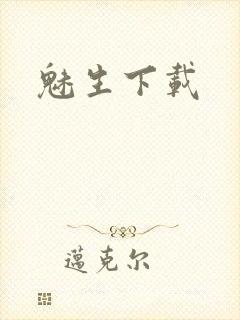 魅生下載
邁克尔